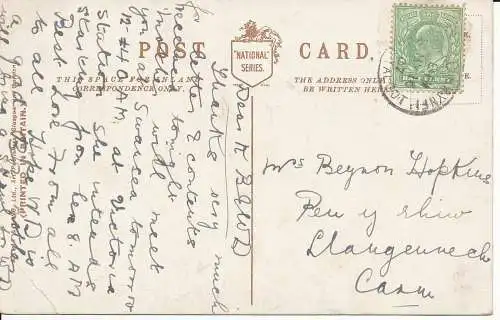 POST CARD.
"NATIONAL" SERIES.
THIS SPACE FOR INLAND
CORRESPONDENCE ONLY.
THE ADDRESS ONLY
BE WRITTEN HERE.
HALFPENNY
Dear A B & W D
Thanks very much
for letter & contents
recd tonight
will meet
you at Swansea tomorrow
12-40 A.M. at Victoria
Station She intends
starting from here 8. AM
Best love from all
to all Hope W D is
a good
(PRINTED IN BRITAIN)
Mrs Beynon Hopkins
Pen y rhiw
Llangennech
Carm